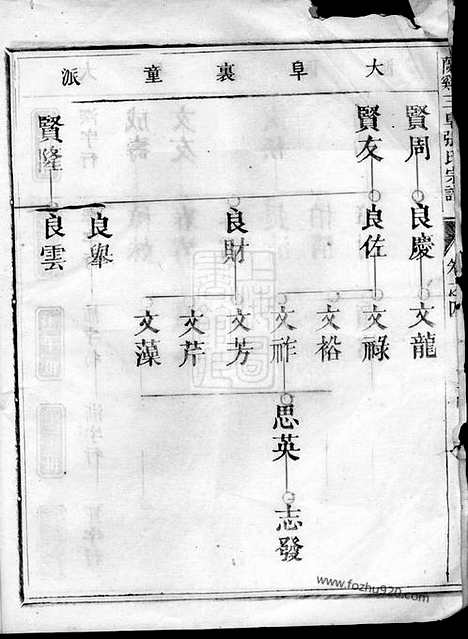 蘭谿三阜張氏宗譜
大阜裏童派
賢周 良慶 文龍
賢友 良佐 文祿
文裕
文祚 思英 志發
良財 文芳
文芹
文藻
良舉
賢隆 良雲
www.fozhu920.com